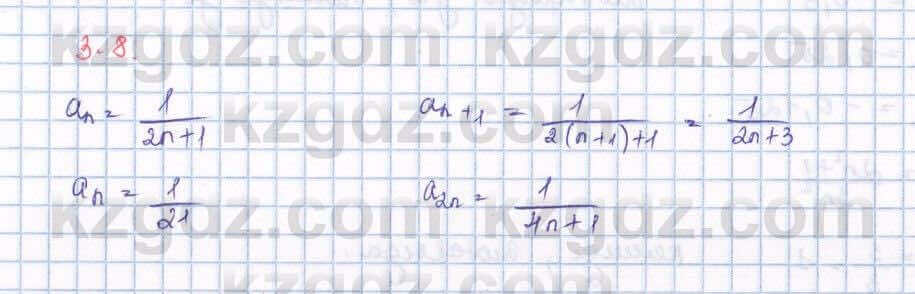 3.8.
aₙ = 1/(2n+1) aₙ₊₁ = 1/(2(n+1)+1) = 1/(2n+3)
aₙ = 1/21 a₂ₙ = 1/(4n+1)
kzgdz.com kzgdz.com
kzgdz.com kzgdz.com
kzgdz.com kzgdz.com
kzgdz.com